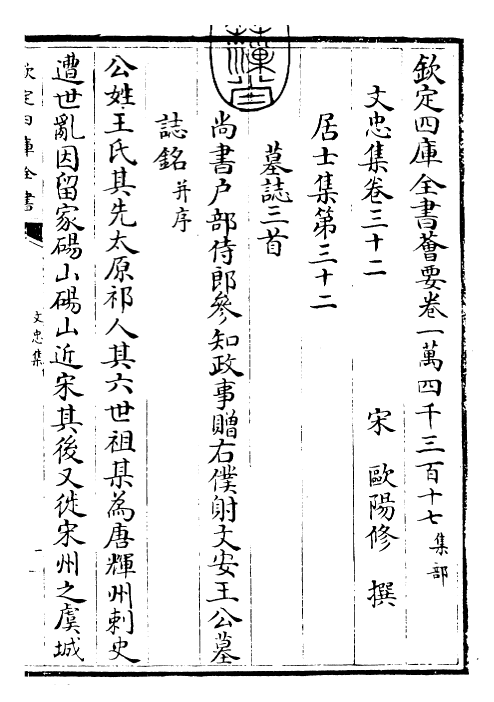 欽定四庫全書薈要卷一萬四千三百十七 集部
文忠集卷三十二　宋 歐陽修 撰
居士集第三十二
墓誌三首
尚書户部侍郎參知政事贈右僕射文安王公墓
誌銘 并序
公姓王氏其先太原祁人其六世祖某為唐輝州刺史
遭世亂因留家碭山碭山近宋其後又徙宋州之虞城
欽定四庫全書
文忠集
一